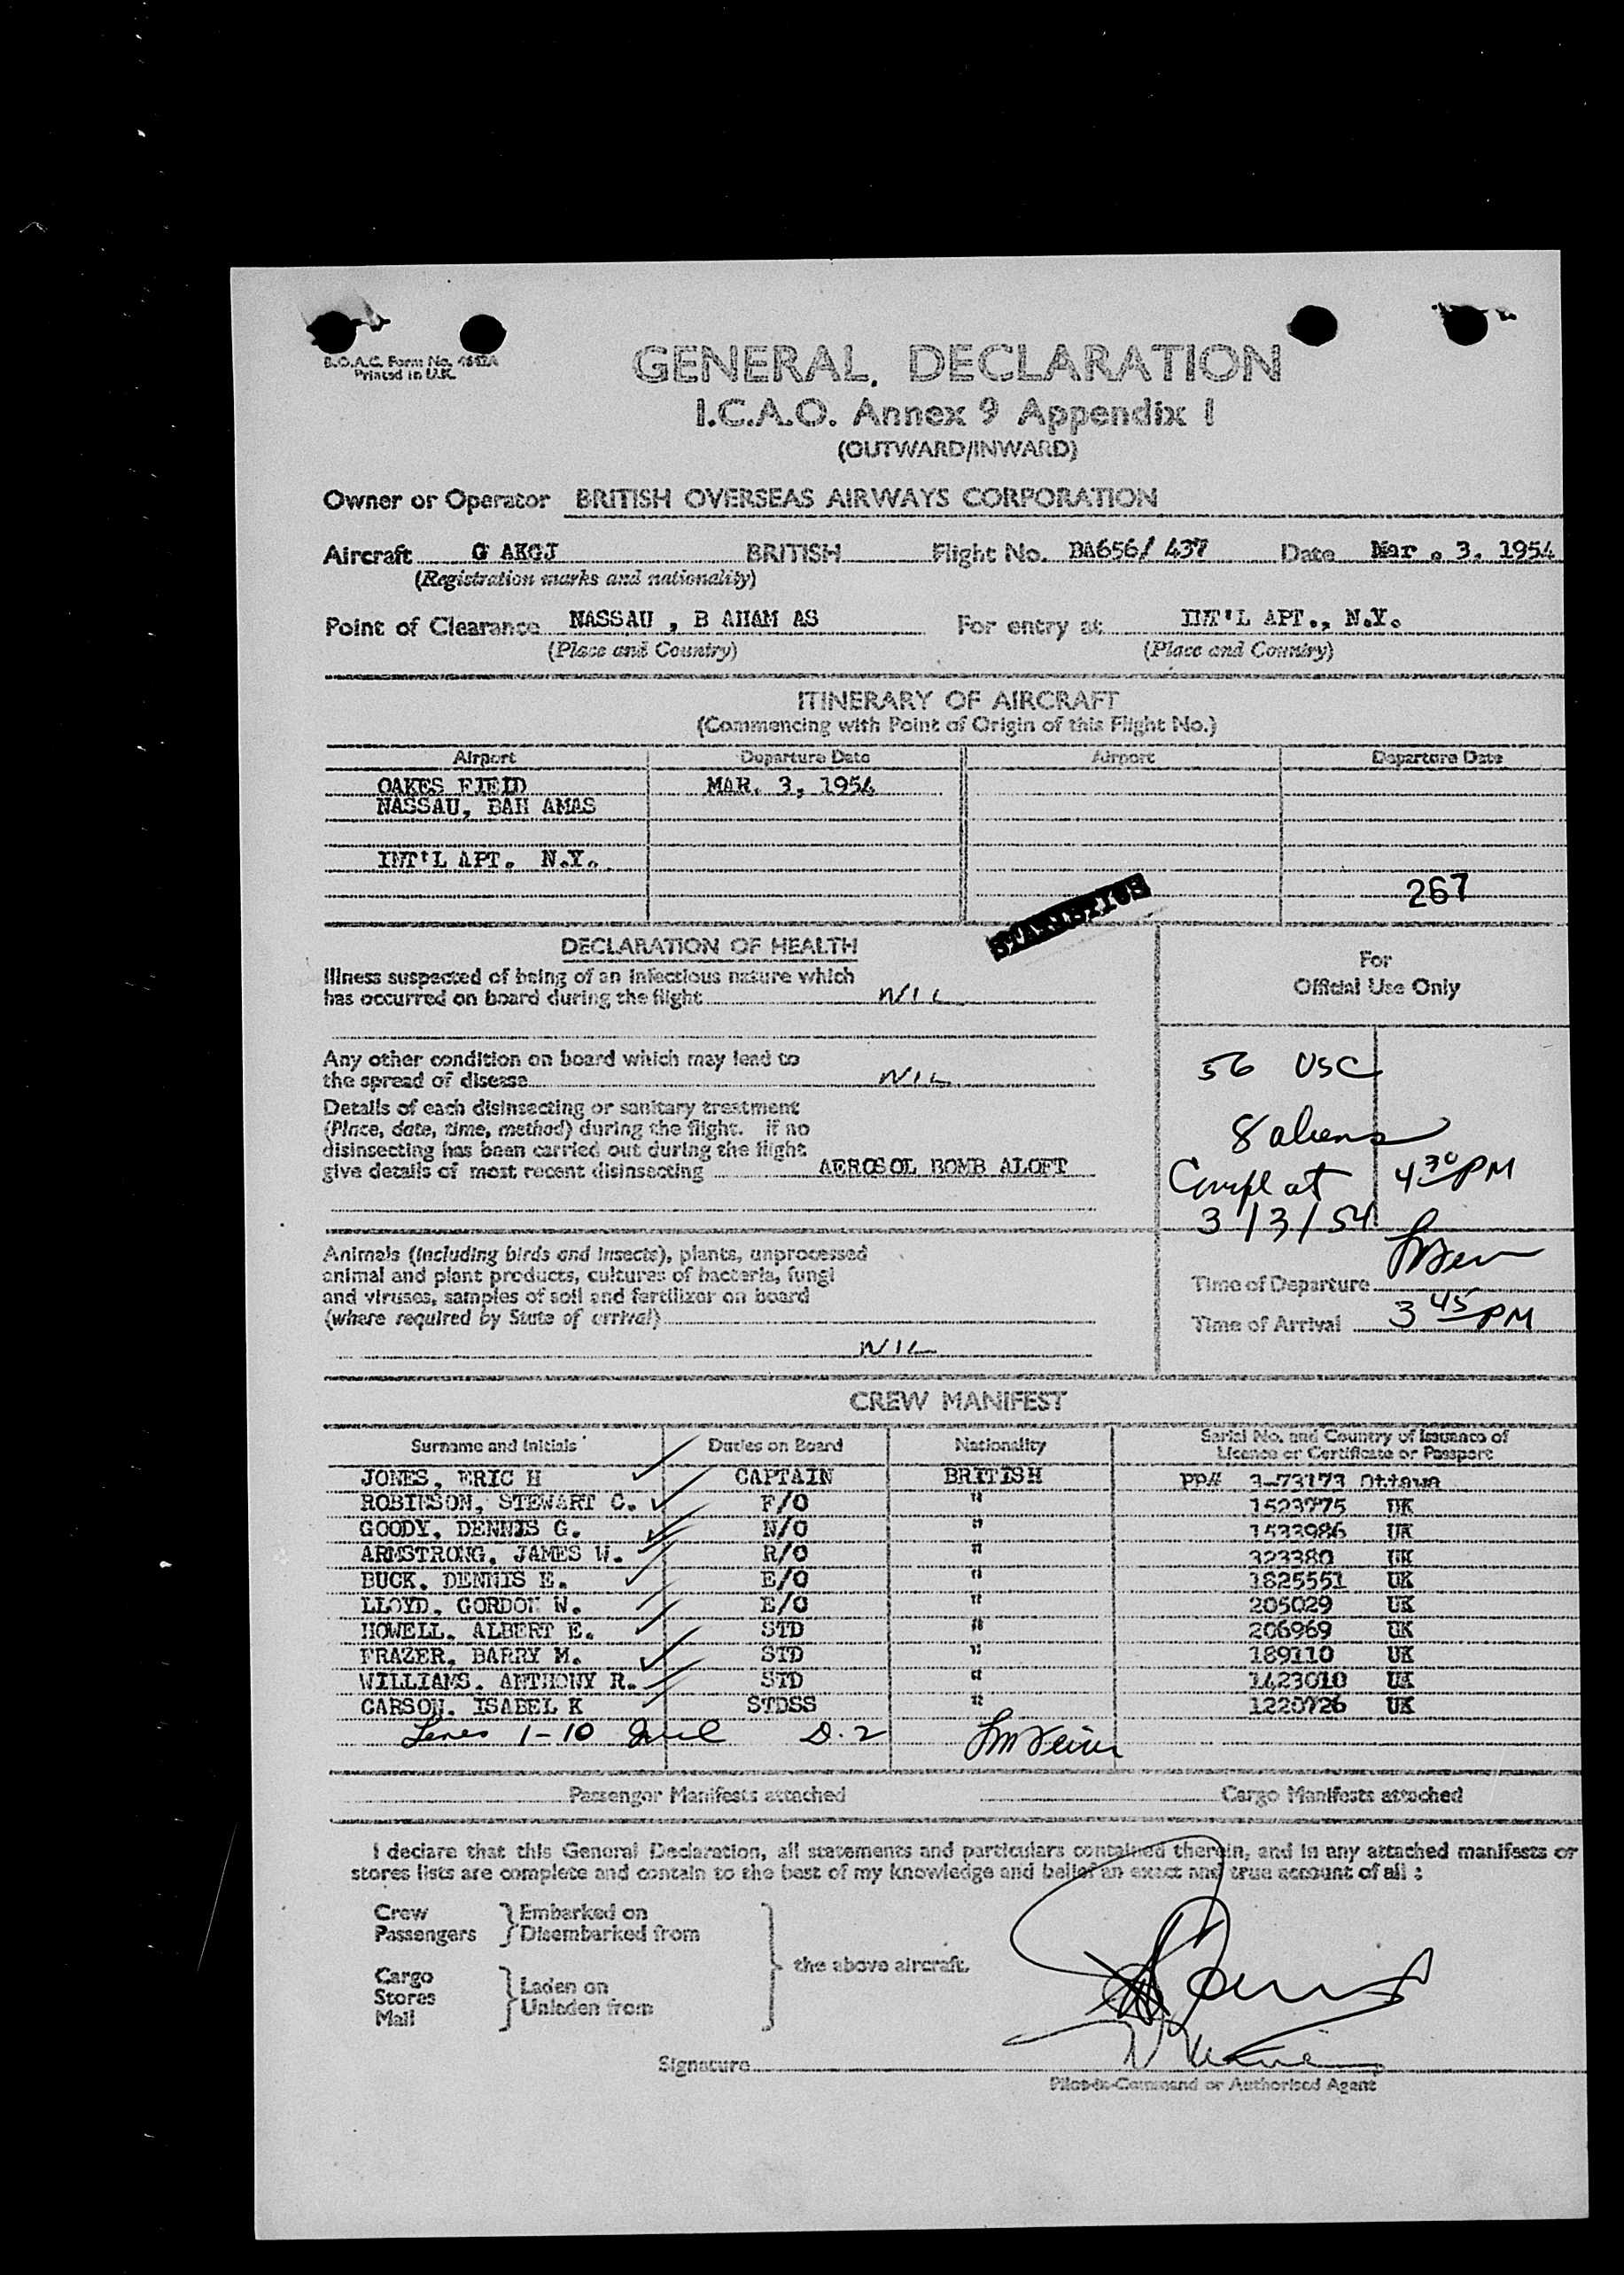 B.O.A.C. Form No. 4612A
Printed in U.K.
GENERAL DECLARATION
I.C.A.O. Annex 9 Appendix I
(OUTWARD/INWARD)
Owner or Operator BRITISH OVERSEAS AIRWAYS CORPORATION
Aircraft G AKGJ BRITISH Flight No. BA656/ 437 Date Mar . 3. 1954
(Registration marks and nationality)
Point of Clearance NASSAU , B AHAM AS For entry at INT'L APT., N.Y.
(Place and Country) (Place and Country)
ITINERARY OF AIRCRAFT
(Commencing with Point of Origin of this Flight No.)
Airport Departure Date Airport Departure Date
OAKES FIELD MAR. 3, 1954
NASSAU, BAH AMAS
INT'L APT. N.Y.
267
STATISTICS
DECLARATION OF HEALTH
For
Official Use Only
Illness suspected of being of an infectious nature which
has occurred on board during the flight NIL
Any other condition on board which may lead to
the spread of disease NIL
56 USC
Details of each disinsecting or sanitary treatment
(Place, date, time, method) during the flight. If no
disinsecting has been carried out during the flight
give details of most recent disinsecting AEROSOL BOMB ALOFT
8 aliens
Compl at 4 30 PM
3/3/54
Animals (including birds and insects), plants, unprocessed
animal and plant products, cultures of bacteria, fungi
and viruses, samples of soil and fertilizer on board
(where required by State of arrival)
NIL
Time of Departure
Time of Arrival 3 45 PM
CREW MANIFEST
Surname and Initials Duties on Board Nationality Serial No. and Country of Issuance of
Licence or Certificate or Passport
JONES, ERIC H CAPTAIN BRITISH PP# 3-73173 Ottawa
ROBINSON, STEWART C. F/O " 1523775 UK
GOODY, DENNIS G. N/O " 1533986 UK
ARMSTRONG, JAMES W. R/O " 323380 UK
BUCK, DENNIS E. E/O " 1825551 UK
LLOYD, GORDON W. E/O " 205029 UK
HOWELL, ALBERT E. STD " 206969 UK
FRAZER, BARRY M. STD " 189110 UK
WILLIAMS, ANTHONY R. STD " 1423010 UK
CARSON, ISABEL K STDSS " 1220726 UK
Lines 1-10 Incl D.2
Passenger Manifests attached Cargo Manifests attached
I declare that this General Declaration, all statements and particulars contained therein, and in any attached manifests or
stores lists are complete and contain to the best of my knowledge and belief an exact and true account of all :
Crew Embarked on
Passengers Disembarked from
the above aircraft.
Cargo Laden on
Stores Unladen from
Mail
Signature
Pilot-in-Command or Authorised Agent